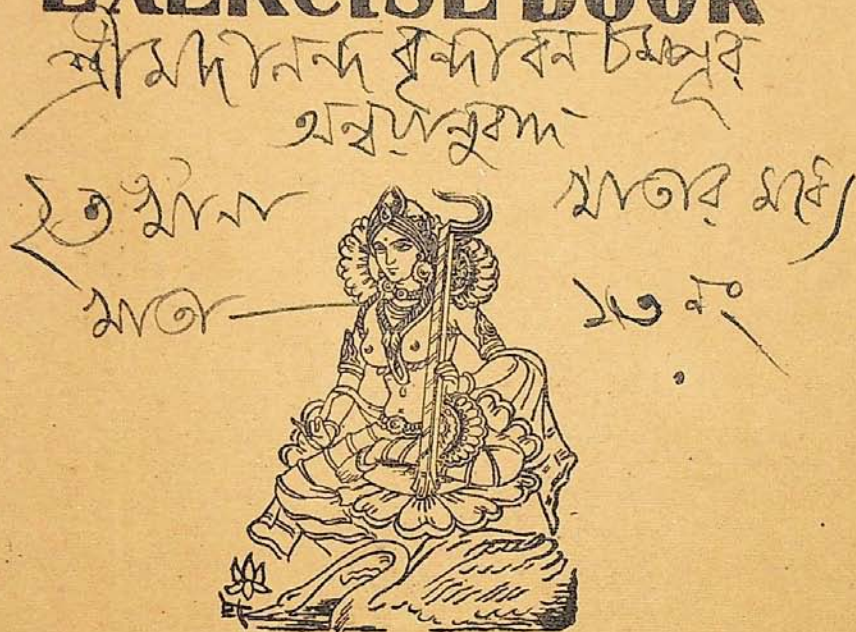 EXERCISE BOOK
শ্রীমদানন্দ বৃন্দাবন চম্পূর
অন্বয়ানুবাদ
২৩ খানা খাতার মধ্যে
খাতা — ১৩ নং